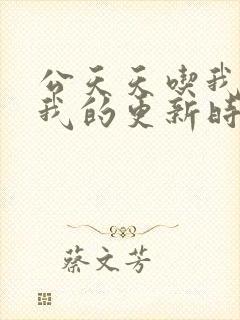 公天天喫我
我的更新時
蔡文芳